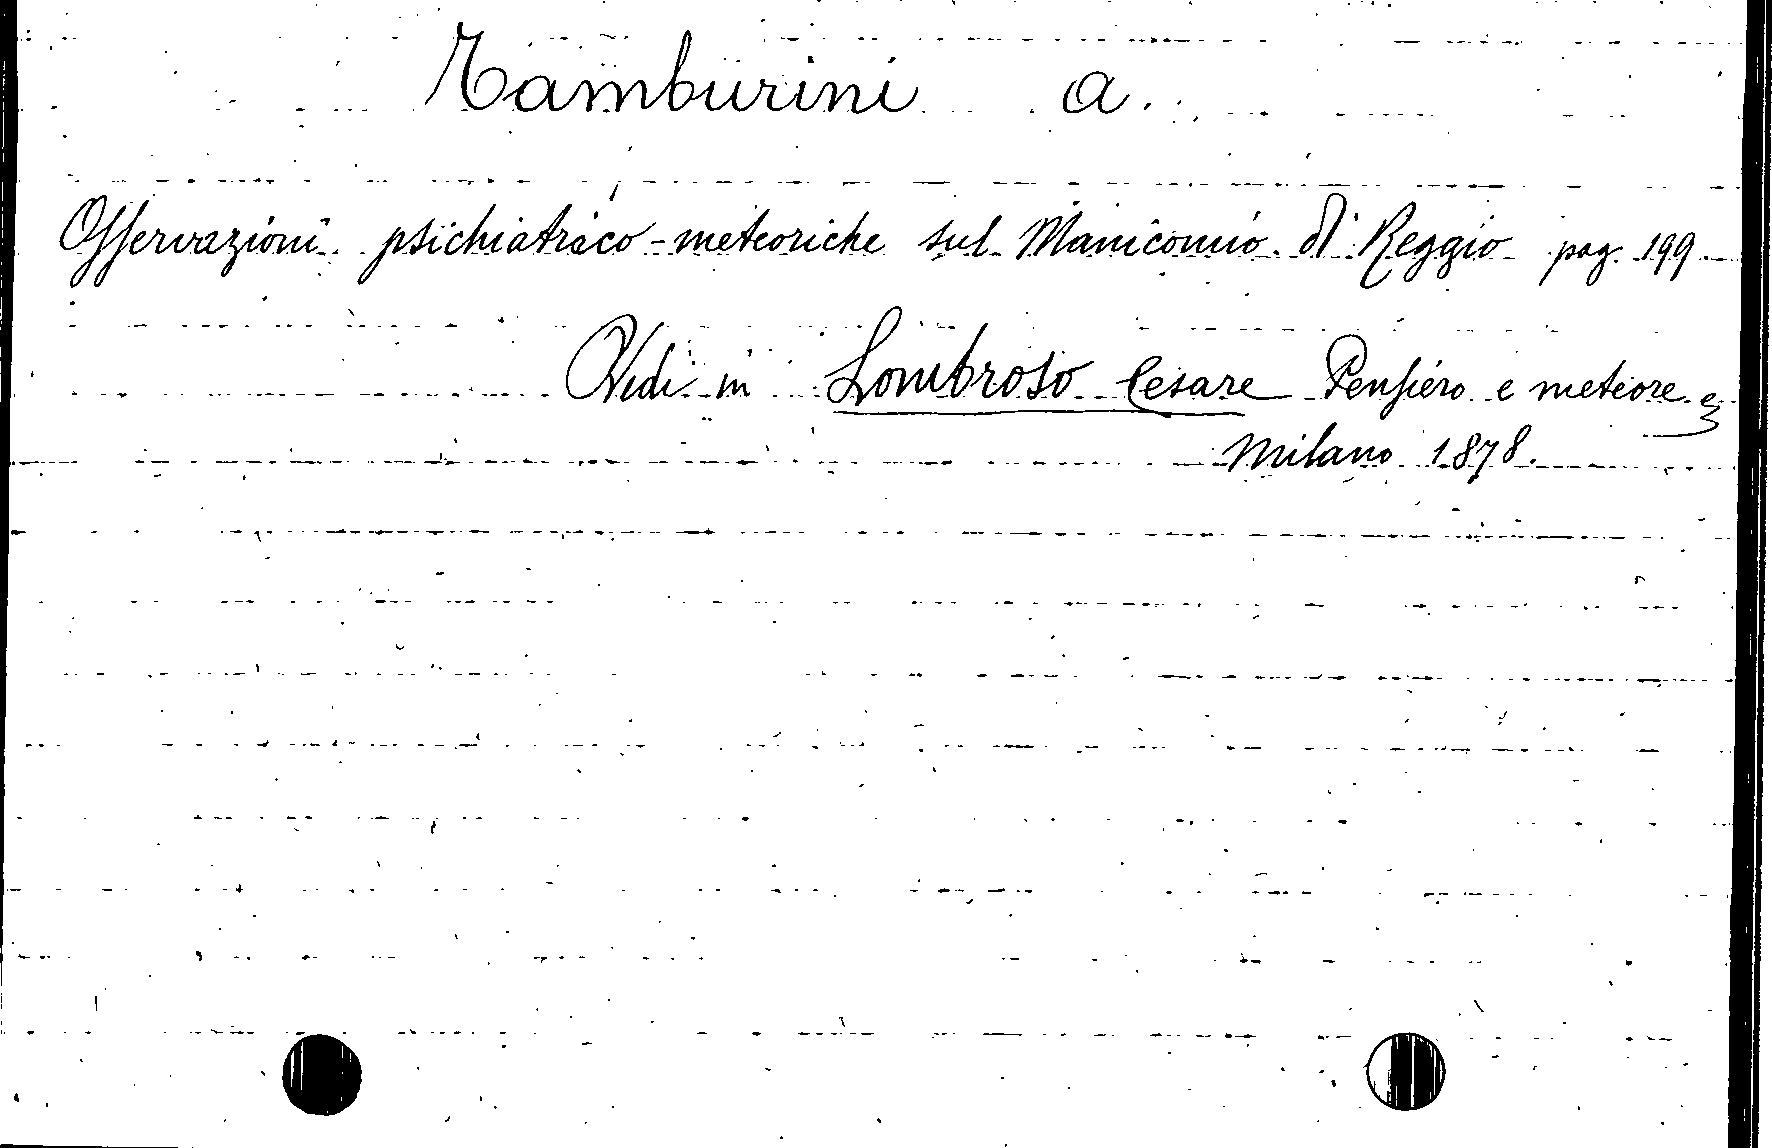 Tamburini A.
Osservazioni psichiatrico-meteoriche sul Manicomio di Reggio pag. 199
Vedi in Lombroso Cesare Pensiero e meteore
Milano 1878.